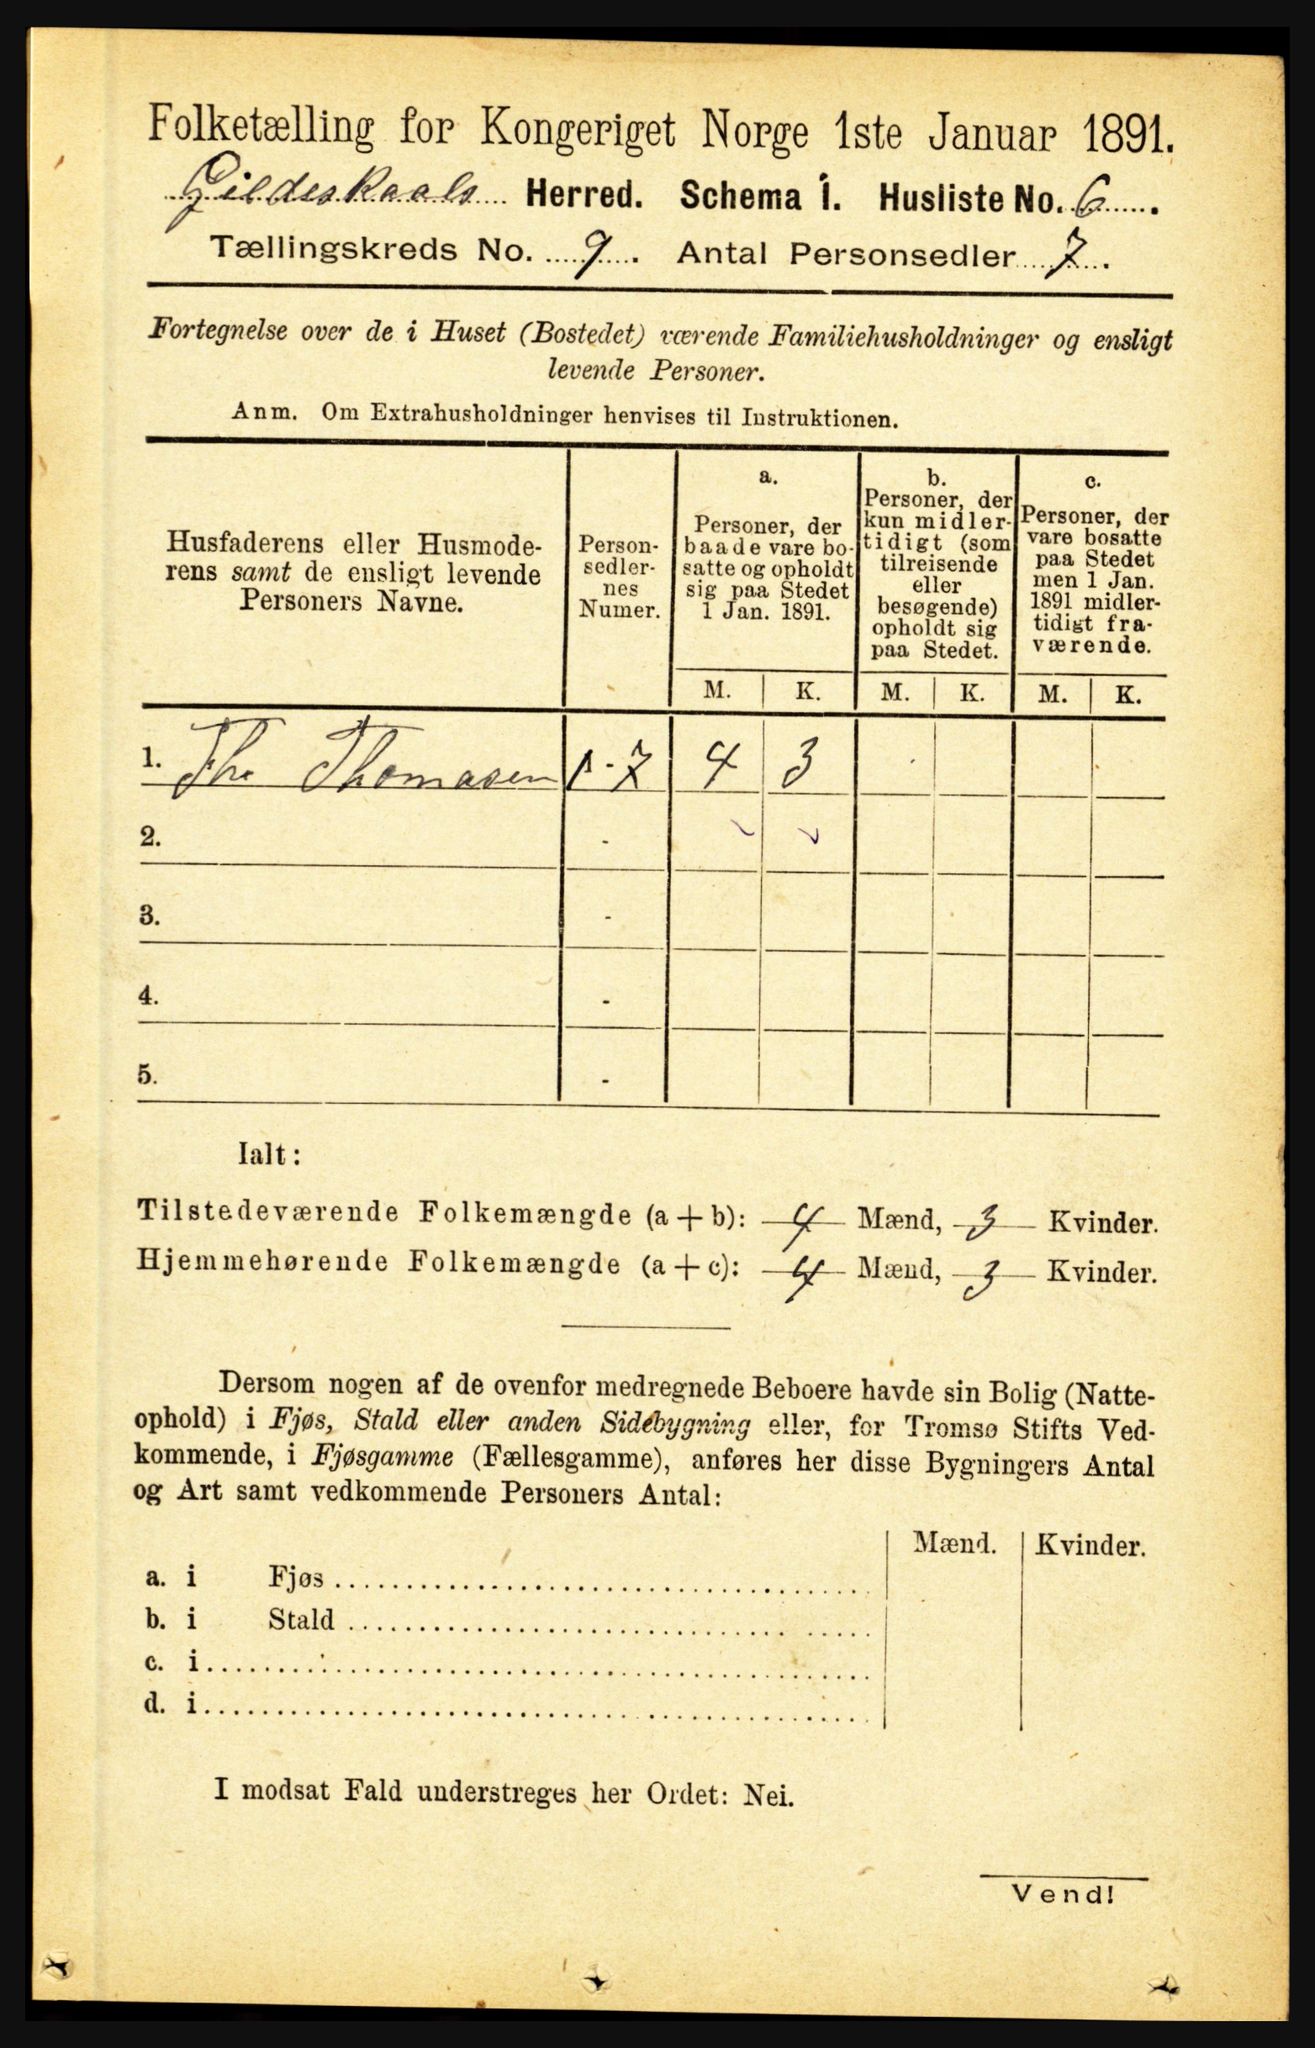 Folketælling for Kongeriget Norge 1ste Januar 1891.
Gildeskaals Herred. Schema I. Husliste No. 6
Tællingskreds No. 9. Antal Personsedler 7.
Fortegnelse over de i Huset (Bostedet) værende Familiehusholdninger og ensligt
levende Personer.
Anm. Om Extrahusholdninger henvises til Instruktionen.
Husfaderens eller Husmode-
rens samt de ensligt levende
Personers Navne.
Person-
sedler-
nes
Numer.
a.
Personer, der
baade vare bo-
satte og opholdt
sig paa Stedet
1 Jan. 1891.
b.
Personer, der
kun midler-
tidigt (som
tilreisende
eller
besøgende)
opholdt sig
paa Stedet.
c.
Personer, der
vare bosatte
paa Stedet
men 1 Jan.
1891 midler-
tidigt fra-
værende.
M. K. M. K. M. K.
1. Thomasen 1-7 4 3
2. -
3. -
4. -
5. -
Ialt:
Tilstedeværende Folkemængde (a+b): 4 Mænd, 3 Kvinder.
Hjemmehørende Folkemængde (a+c): 4 Mænd, 3 Kvinder.
Dersom nogen af de ovenfor medregnede Beboere havde sin Bolig (Natte-
ophold) i Fjøs, Stald eller anden Sidebygning eller, for Tromsø Stifts Ved-
kommende, i Fjøsgamme (Fællesgamme), anføres her disse Bygningers Antal
og Art samt vedkommende Personers Antal:
Mænd. Kvinder.
a. i Fjøs
b. i Stald
c. i
d. i
I modsat Fald understreges her Ordet: Nei.
Vend!